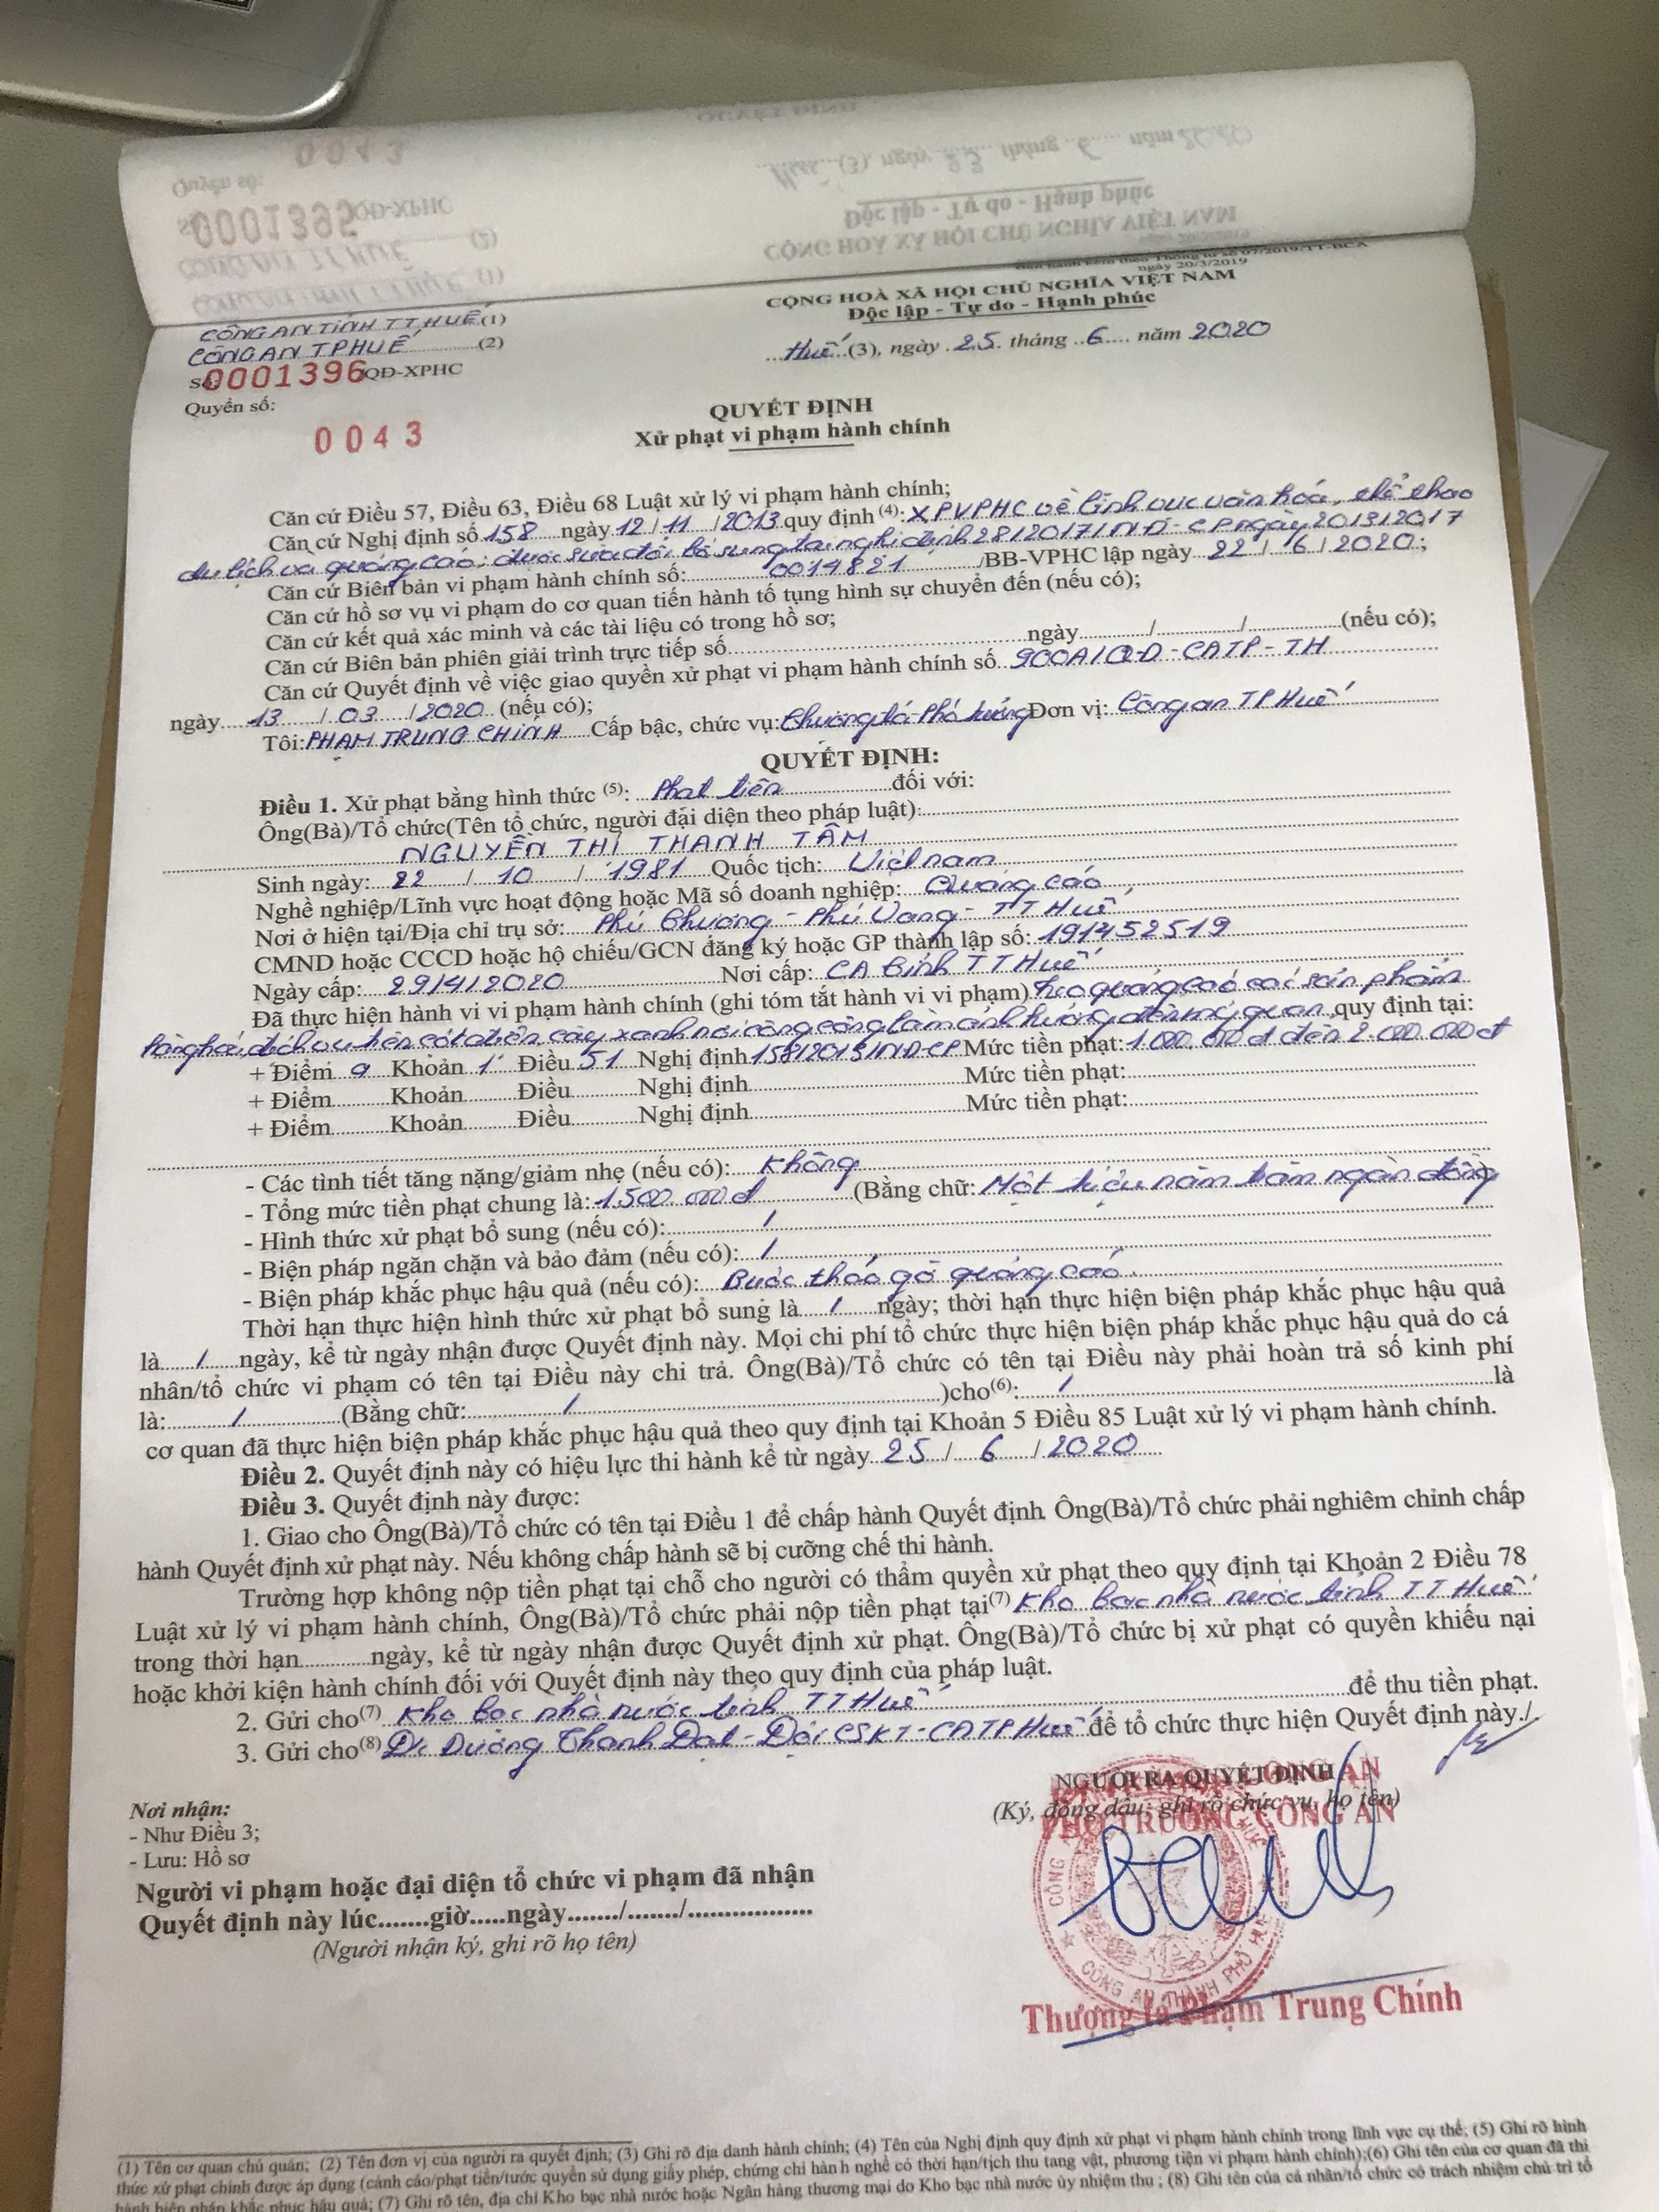 Ban hành kèm theo Thông tư số 07/2019/TT-BCA
ngày 20/3/2019
CÔNG AN TỈNH TT HUẾ (1)
CÔNG AN TP HUẾ (2)
Số: 0001396 QĐ-XPHC
Quyển số:
0043
CỘNG HOÀ XÃ HỘI CHỦ NGHĨA VIỆT NAM
Độc lập - Tự do - Hạnh phúc
Huế (3), ngày 25 tháng 6 năm 2020
QUYẾT ĐỊNH
Xử phạt vi phạm hành chính
Căn cứ Điều 57, Điều 63, Điều 68 Luật xử lý vi phạm hành chính;
Căn cứ Nghị định số 158 ngày 12/11/2013 quy định (4): XPVPHC về lĩnh vực văn hóa, thể thao
du lịch và quảng cáo; được sửa đổi, bổ sung tại nghị định 28/2017/NĐ-CP ngày 20/3/2017
Căn cứ Biên bản vi phạm hành chính số: 0014821 /BB-VPHC lập ngày 22/6/2020;
Căn cứ hồ sơ vụ vi phạm do cơ quan tiến hành tố tụng hình sự chuyển đến (nếu có);
Căn cứ kết quả xác minh và các tài liệu có trong hồ sơ;
Căn cứ Biên bản phiên giải trình trực tiếp số ngày / / (nếu có);
Căn cứ Quyết định về việc giao quyền xử phạt vi phạm hành chính số 900A/QĐ-CATP-TH
ngày 13/03/2020 (nếu có);
Tôi: PHẠM TRUNG CHÍNH Cấp bậc, chức vụ: Thượng tá - Phó trưởng Đơn vị: Công an TP Huế
QUYẾT ĐỊNH:
Điều 1. Xử phạt bằng hình thức (5): Phạt tiền đối với:
Ông(Bà)/Tổ chức(Tên tổ chức, người đại diện theo pháp luật):
NGUYỄN THỊ THANH TÂM
Sinh ngày: 22 / 10 / 1981 Quốc tịch: Việt nam
Nghề nghiệp/Lĩnh vực hoạt động hoặc Mã số doanh nghiệp: Quảng cáo
Nơi ở hiện tại/Địa chỉ trụ sở: Phú Thượng - Phú Vang - TT Huế
CMND hoặc CCCD hoặc hộ chiếu/GCN đăng ký hoặc GP thành lập số: 191452519
Ngày cấp: 29/4/2020 Nơi cấp: CA tỉnh TT Huế
Đã thực hiện hành vi vi phạm hành chính (ghi tóm tắt hành vi vi phạm) treo quảng cáo các sản phẩm
hàng hoá, dịch vụ trên cột điện, cây xanh nơi công cộng làm ảnh hưởng đến mỹ quan, quy định tại:
+ Điểm a Khoản 1 Điều 51 Nghị định 158/2013/NĐ-CP Mức tiền phạt: 1.000.000đ đến 2.000.000đ
+ Điểm Khoản Điều Nghị định Mức tiền phạt:
+ Điểm Khoản Điều Nghị định Mức tiền phạt:
- Các tình tiết tăng nặng/giảm nhẹ (nếu có): Không
- Tổng mức tiền phạt chung là: 1.500.000đ (Bằng chữ: Một triệu năm trăm ngàn đồng)
- Hình thức xử phạt bổ sung (nếu có): /
- Biện pháp ngăn chặn và bảo đảm (nếu có): /
- Biện pháp khắc phục hậu quả (nếu có): Buộc tháo gỡ quảng cáo.
Thời hạn thực hiện hình thức xử phạt bổ sung là / ngày; thời hạn thực hiện biện pháp khắc phục hậu quả
là / ngày, kể từ ngày nhận được Quyết định này. Mọi chi phí tổ chức thực hiện biện pháp khắc phục hậu quả do cá
nhân/tổ chức vi phạm có tên tại Điều này chi trả. Ông(Bà)/Tổ chức có tên tại Điều này phải hoàn trả số kinh phí
là: / (Bằng chữ: / )cho(6): / là
cơ quan đã thực hiện biện pháp khắc phục hậu quả theo quy định tại Khoản 5 Điều 85 Luật xử lý vi phạm hành chính.
Điều 2. Quyết định này có hiệu lực thi hành kể từ ngày 25/ 6 /2020
Điều 3. Quyết định này được:
1. Giao cho Ông(Bà)/Tổ chức có tên tại Điều 1 để chấp hành Quyết định. Ông(Bà)/Tổ chức phải nghiêm chỉnh chấp
hành Quyết định xử phạt này. Nếu không chấp hành sẽ bị cưỡng chế thi hành.
Trường hợp không nộp tiền phạt tại chỗ cho người có thẩm quyền xử phạt theo quy định tại Khoản 2 Điều 78
Luật xử lý vi phạm hành chính, Ông(Bà)/Tổ chức phải nộp tiền phạt tại(7) Kho bạc nhà nước tỉnh TT Huế
trong thời hạn ngày, kể từ ngày nhận được Quyết định xử phạt. Ông(Bà)/Tổ chức bị xử phạt có quyền khiếu nại
hoặc khởi kiện hành chính đối với Quyết định này theo quy định của pháp luật.
2. Gửi cho(7) Kho bạc nhà nước tỉnh TT Huế để thu tiền phạt.
3. Gửi cho(8) Đ/c Dương Thanh Đạt - Đội CSKT - CATP Huế để tổ chức thực hiện Quyết định này./.
NGƯỜI RA QUYẾT ĐỊNH
(Ký, đóng dấu; ghi rõ chức vụ, họ tên)
PHÓ TRƯỞNG CÔNG AN
CÔNG AN THÀNH PHỐ HUẾ
Thượng tá Phạm Trung Chính
Nơi nhận:
- Như Điều 3;
- Lưu: Hồ sơ
Người vi phạm hoặc đại diện tổ chức vi phạm đã nhận
Quyết định này lúc.......giờ.....ngày......./......./.................
(Người nhận ký, ghi rõ họ tên)
(1) Tên cơ quan chủ quản; (2) Tên đơn vị của người ra quyết định; (3) Ghi rõ địa danh hành chính; (4) Tên của Nghị định quy định xử phạt vi phạm hành chính trong lĩnh vực cụ thể; (5) Ghi rõ hình
thức xử phạt chính được áp dụng (cảnh cáo/phạt tiền/tước quyền sử dụng giấy phép, chứng chỉ hành nghề có thời hạn/tịch thu tang vật, phương tiện vi phạm hành chính);(6) Ghi tên của cơ quan đã thi
hành biện pháp khắc phục hậu quả; (7) Ghi rõ tên, địa chỉ Kho bạc nhà nước hoặc Ngân hàng thương mại do Kho bạc nhà nước ủy nhiệm thu; (8) Ghi tên của cá nhân/tổ chức có trách nhiệm chủ trì tổ